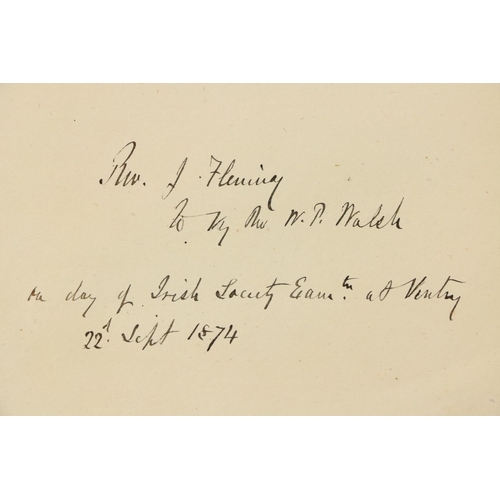 Rev. J. Fleming
to Vy Rev W. P. Walsh
on day of Irish Society Examtn. at Ventry
22d. Sept 1874